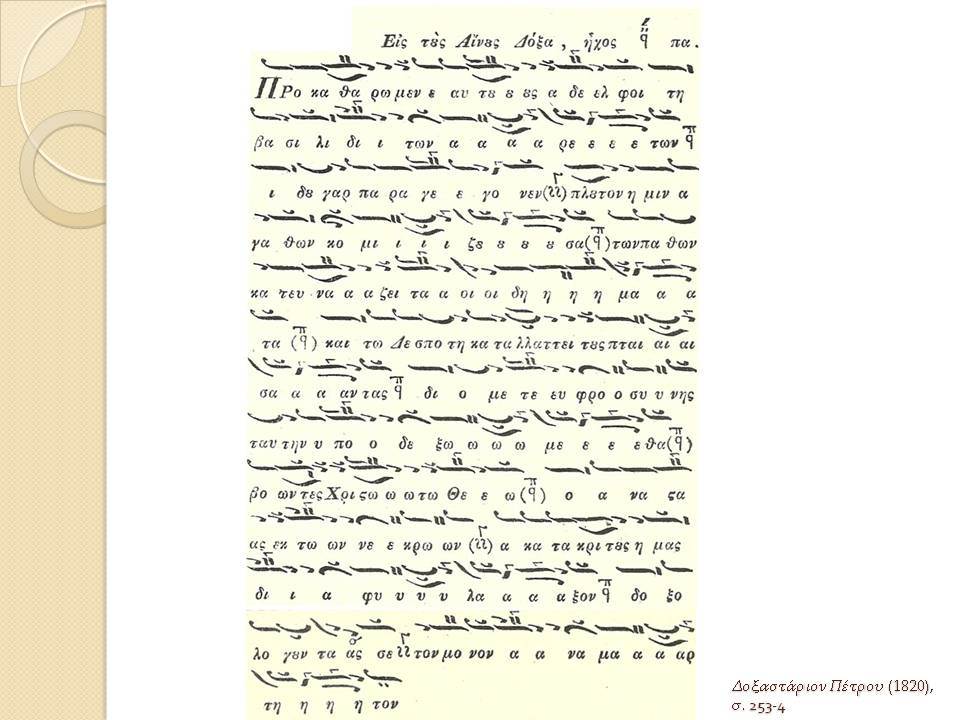 Εἰς τὲς Αἴνες Δόξα, ἦχος πα.
ΠΡο κα θα ρω μεν ε αυ τ8 8 8ς α δε ελ φοι τη
βα σι λι δι ι των α α α α ρε ε ε ε των
ι δ8 γαρ πα ρα γε ε γο νεν πλ8τον η μιν α
γα θων κο μι ι ι ι ζ8 8 8 8 σα των πα θων
κα τευ να α α ζει τα α οι οι δη η η η μα α α
τα και τω Δε σπο τη κα τα λλαττει τ8ς πται αι αι
σα α α αν τας δι ο με τε ευ φρο ο συ υ νης
ταυ την υ πο ο δε ξω ω ω ω με ε ε ε θα
βο ων τες Χρι ςω ω ω τω Θε ε ω ο α να ςα
ας εκ τω ων νε ε κρω ων α κα τα κρι τ8ς η μας
δι ι α φυ υ υ υ λα α α α ξον δο ξο
λο γεν τα ας σε τον μο νον α α να μα α α αρ
τη η η η τον
Δοξαστάριον Πέτρου (1820),
σ. 253-4